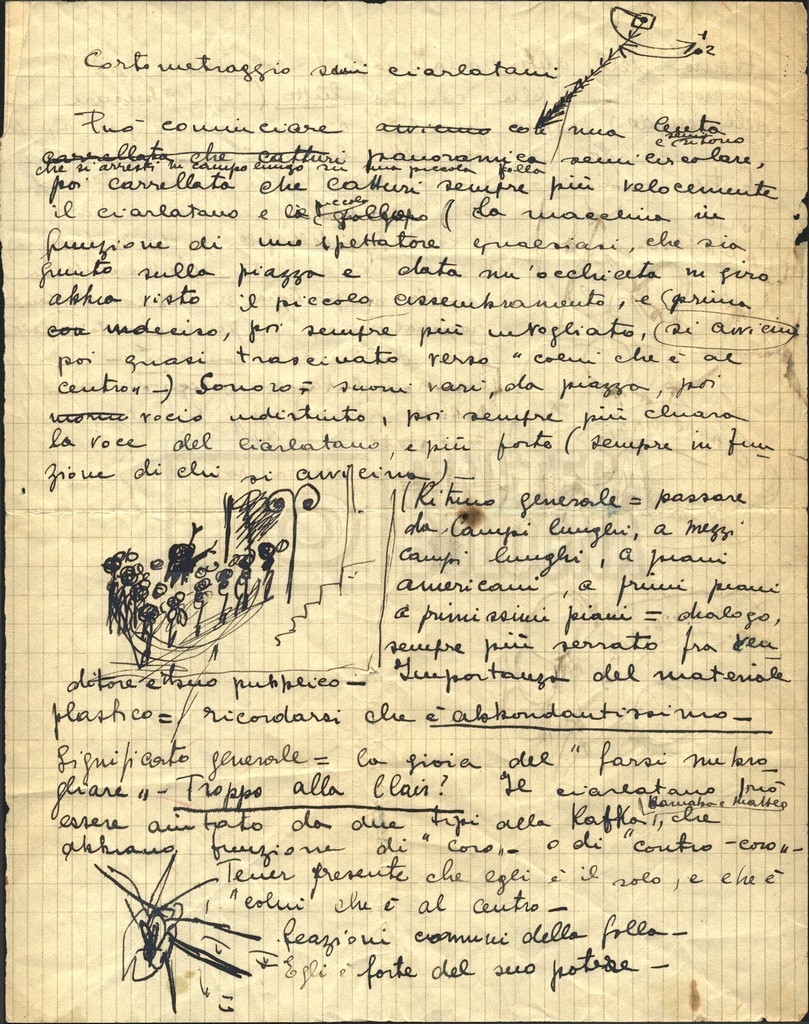 Cortometraggio sui ciarlatani
Può cominciare avvicino con una lenta
semi e ritorno
carrellata che catturi panoramica semicircolare,
che si arresti in campo lungo su una piccola folla
poi carrellata che catturi sempre più velocemente
il ciarlatano e il piccolo (La macchina in
funzione di uno spettatore qualsiasi, che sia
giunto sulla piazza e data un'occhiata in giro
abbia visto il piccolo assembramento, e (prima
con indeciso, poi sempre più invogliato, (si avvicin
poi quasi trascinato verso "colui che è al
centro„ —) Sonoro = suoni vari, da piazza, poi
vocio indistinto, poi sempre più chiara
la voce del ciarlatano, e più forte (sempre in fun
zione di chi si avvicina) —
(Ritmo generale = passare
da Campi lunghi, a mezzi
campi lunghi, a piani
americani, a primi piani
a primissimi piani = dialogo,
sempre più serrato fra ven
ditore e il suo pubblico — Importanza del materiale
plastico = ricordarsi che è abbondantissimo —
Significato generale = la gioia del "farsi imbro
gliare„ — Troppo alla Clair? Il ciarlatano può
essere aiutato da due tipi alla Kafka, (Barnaba e Matteo) che
abbiano funzione di "coro„ — o di "contro-coro„ —
Tener presente che egli è il solo, e che è
"colui" che è al centro —
Reazioni comuni della folla —
Egli è forte del suo potere —